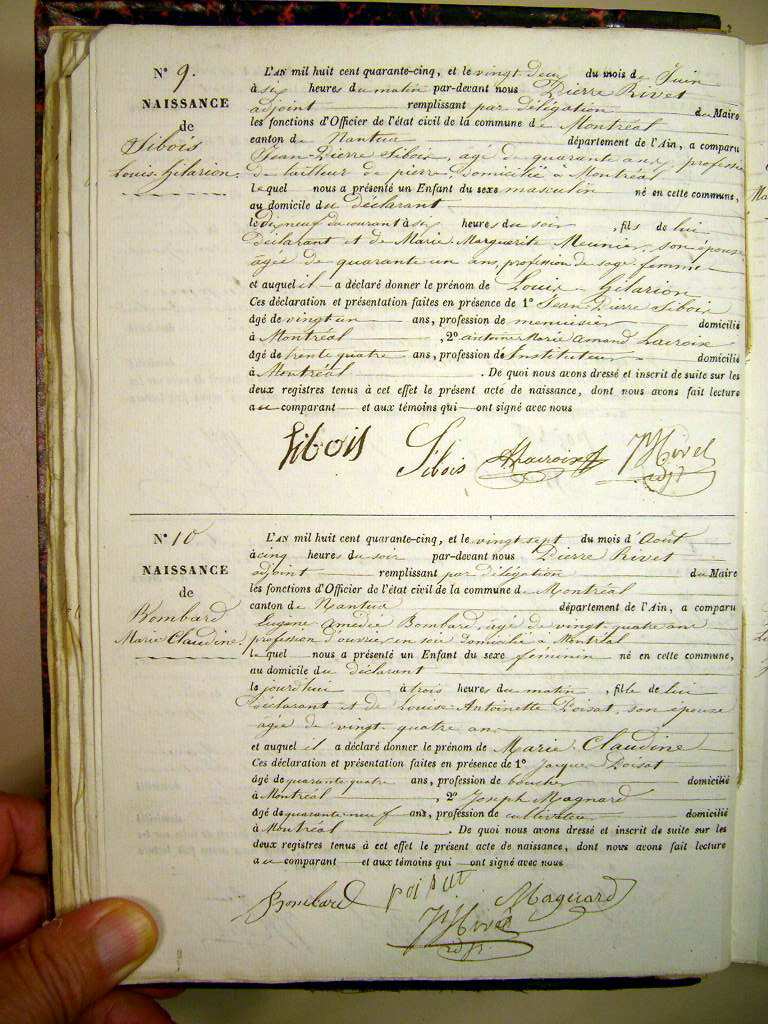 N° 9.
NAISSANCE
de
Sibois
Louis Hilarion.
L'AN mil huit cent quarante-cinq, et le vingt deux du mois de Juin
à six heures du matin par-devant nous Pierre Rivet
adjoint remplissant par délégation du Maire
les fonctions d'Officier de l'état civil de la commune de Montréal
canton de Nantua département de l'Ain, a comparu
Jean Pierre Sibois, agé de quarante ans, profession
de tailleur de pierre, domicilié à Montréal
lequel nous a présenté un Enfant du sexe masculin né en cette commune,
au domicile du déclarant
le dix neuf du courant à six heures du soir, fils de lui
déclarant et de Marie Marguerite Meunier, son épouse
agée de quarante un ans, profession de sage femme
et auquel il a déclaré donner le prénom de Louis Hilarion
Ces déclaration et présentation faites en présence de 1° Jean Pierre Sibois
âgé de vingt un ans, profession de menuisier domicilié
à Montréal, 2° antoine Marie Amand Lacroix
âgé de trente quatre ans, profession de Instituteur domicilié
à Montréal. De quoi nous avons dressé et inscrit de suite sur les
deux registres tenus à cet effet le présent acte de naissance, dont nous avons fait lecture
au comparant et aux témoins qui ont signé avec nous
Sibois Sibois Lacroix Rivet
adjt
N° 10
NAISSANCE
de
Bombard
Marie Claudine
L'AN mil huit cent quarante-cinq, et le vingt sept du mois d'Août
à cinq heures du soir par-devant nous Pierre Rivet
adjoint remplissant par délégation du Maire
les fonctions d'Officier de l'état civil de la commune de Montréal
canton de Nantua département de l'Ain, a comparu
Eugène Amédée Bombard, agé de vingt quatre ans
profession d'ouvrier en soie domicilié à Montréal
lequel nous a présenté un Enfant du sexe féminin né en cette commune,
au domicile du déclarant
le jourdhui à trois heures du matin, fille de lui
déclarant et de Louise Antoinette Poisat, son épouse
agée de vingt quatre ans
et auquel il a déclaré donner le prénom de Marie Claudine
Ces déclaration et présentation faites en présence de 1° Jacques Poisat
âgé de quarante quatre ans, profession de boucher domicilié
à Montréal, 2° Joseph Magnard
âgé de quarante neuf ans, profession de cultivateur domicilié
à Montréal. De quoi nous avons dressé et inscrit de suite sur les
deux registres tenus à cet effet le présent acte de naissance, dont nous avons fait lecture
au comparant et aux témoins qui ont signé avec nous
Bombard poisat Magnard
Rivet
adjt